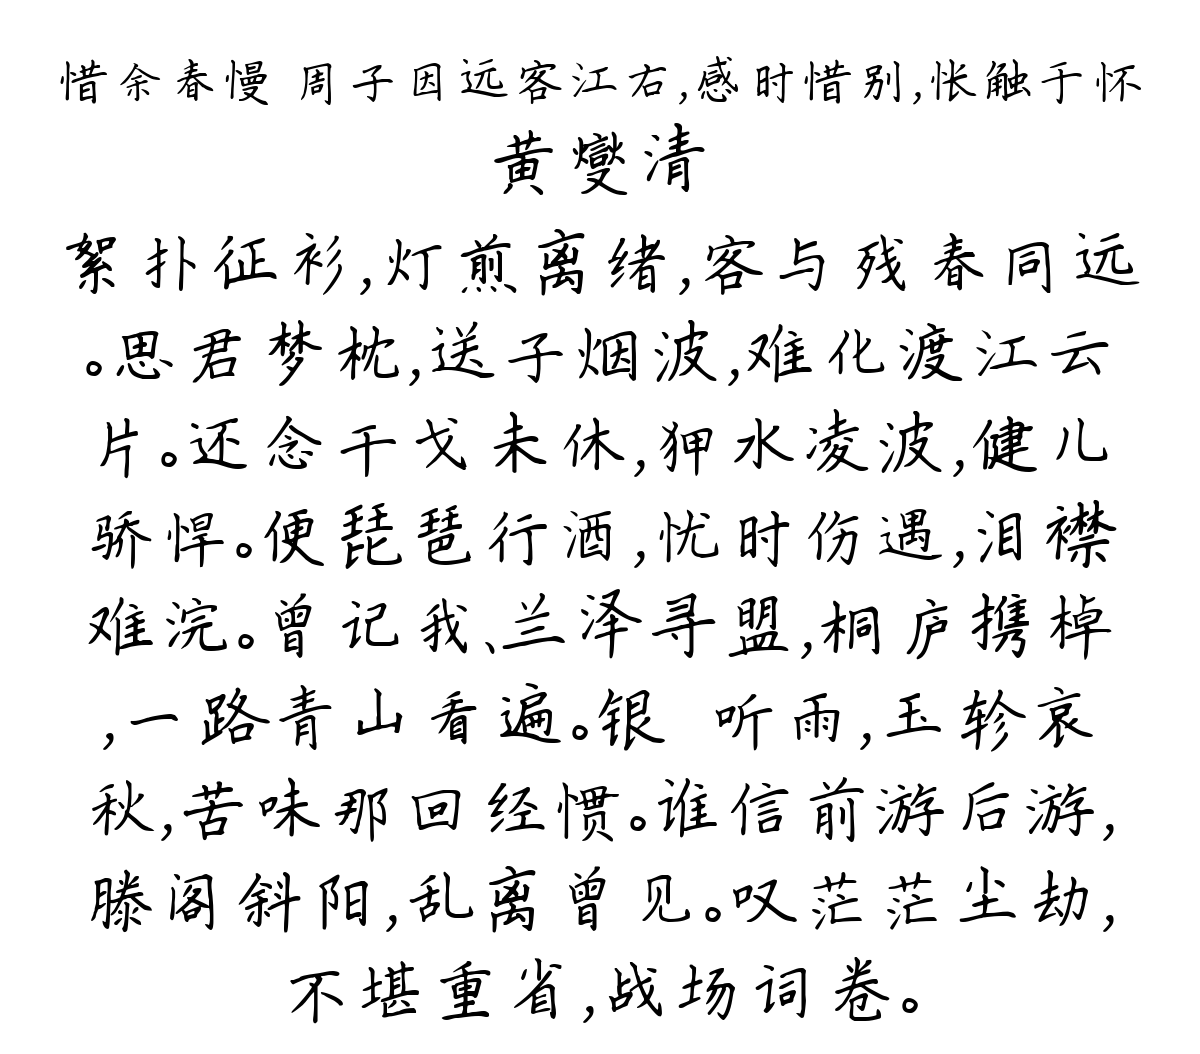 惜余春慢 周子因远客江右,感时惜别,怅触于怀
黄燮清
絮扑征衫,灯煎离绪,客与残春同远
。思君梦枕,送子烟波,难化渡江云
片。还念干戈未休,狎水凌波,健儿
骄悍。便琵琶行酒,忧时伤遇,泪襟
难浣。曾记我、兰泽寻盟,桐庐携棹
,一路青山看遍。银 听雨,玉轸哀
秋,苦味那回经惯。谁信前游后游,
滕阁斜阳,乱离曾见。叹茫茫尘劫,
不堪重省,战场词卷。